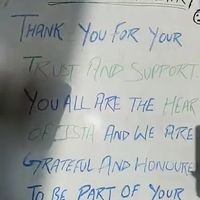 THANK YOU FOR YOUR
TRUST AND SUPPORT
YOU ALL ARE THE HEAR
OF IESTA AND WE ARE
GRATEFUL AND HONOURE
TO BE PART OF YOUR